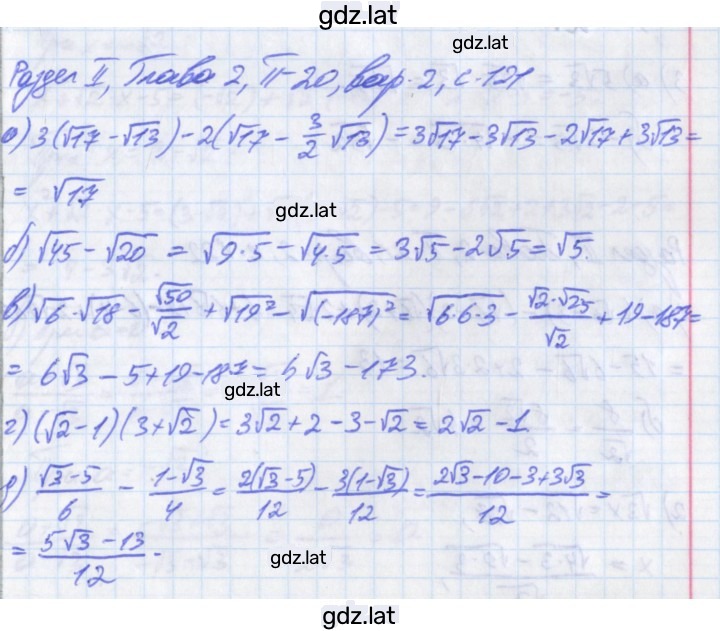 gdz.lat
gdz.lat
Раздел II, Глава 2, П-20, вар. 2, с. 121
а) 3(√17 - √13) - 2(√17 - 3/2 √13) = 3√17 - 3√13 - 2√17 + 3√13 =
= √17
gdz.lat
б) √45 - √20 = √(9·5) - √(4·5) = 3√5 - 2√5 = √5.
в) √6·√18 - √50/√2 + √19² - √(-187)² = √(6·6·3) - √2·√25/√2 + 19 - 187 =
= 6√3 - 5 + 19 - 187 = 6√3 - 173.
gdz.lat
г) (√2 - 1)(3 + √2) = 3√2 + 2 - 3 - √2 = 2√2 - 1
д) (√3 - 5)/6 - (1 - √3)/4 = 2(√3 - 5)/12 - 3(1 - √3)/12 = (2√3 - 10 - 3 + 3√3)/12 =
= (5√3 - 13)/12.
gdz.lat
gdz.lat